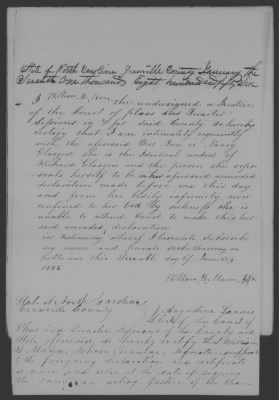 State of North Carolina Granville County January the
Seventh One thousand Eight hundred and fifty Six
I William H. Mann, the undersigned a Justice
of the Court of pleas and Quarter
Sessions in & for said County do hereby
certify that I am intimately acquainted
with the aforesaid Nancy
Glasgow She is the identical widow of
Richard Glasgow and the person she repre-
sents herself to be in the aforesaid amended
declaration made before me this day
and from her bodily infirmity now
confined to her bed by sickness she is
unable to attend Court to make this her
said amended declaration
in testimony whereof I hereunto Subscribe
my name and private seal having as
before me this Seventh day of January
1856
William H. Mann, J.P.
State of North Carolina
Granville County I Augustine Landis
Clerk of the Court of
Pleas and Quarter Sessions of the County and
State aforesaid do hereby certify that William
H. Mann, whose genuine signature appears
to the foregoing declaration and certificate
is now and was at the date of signing
the same an acting Justice of the Peace